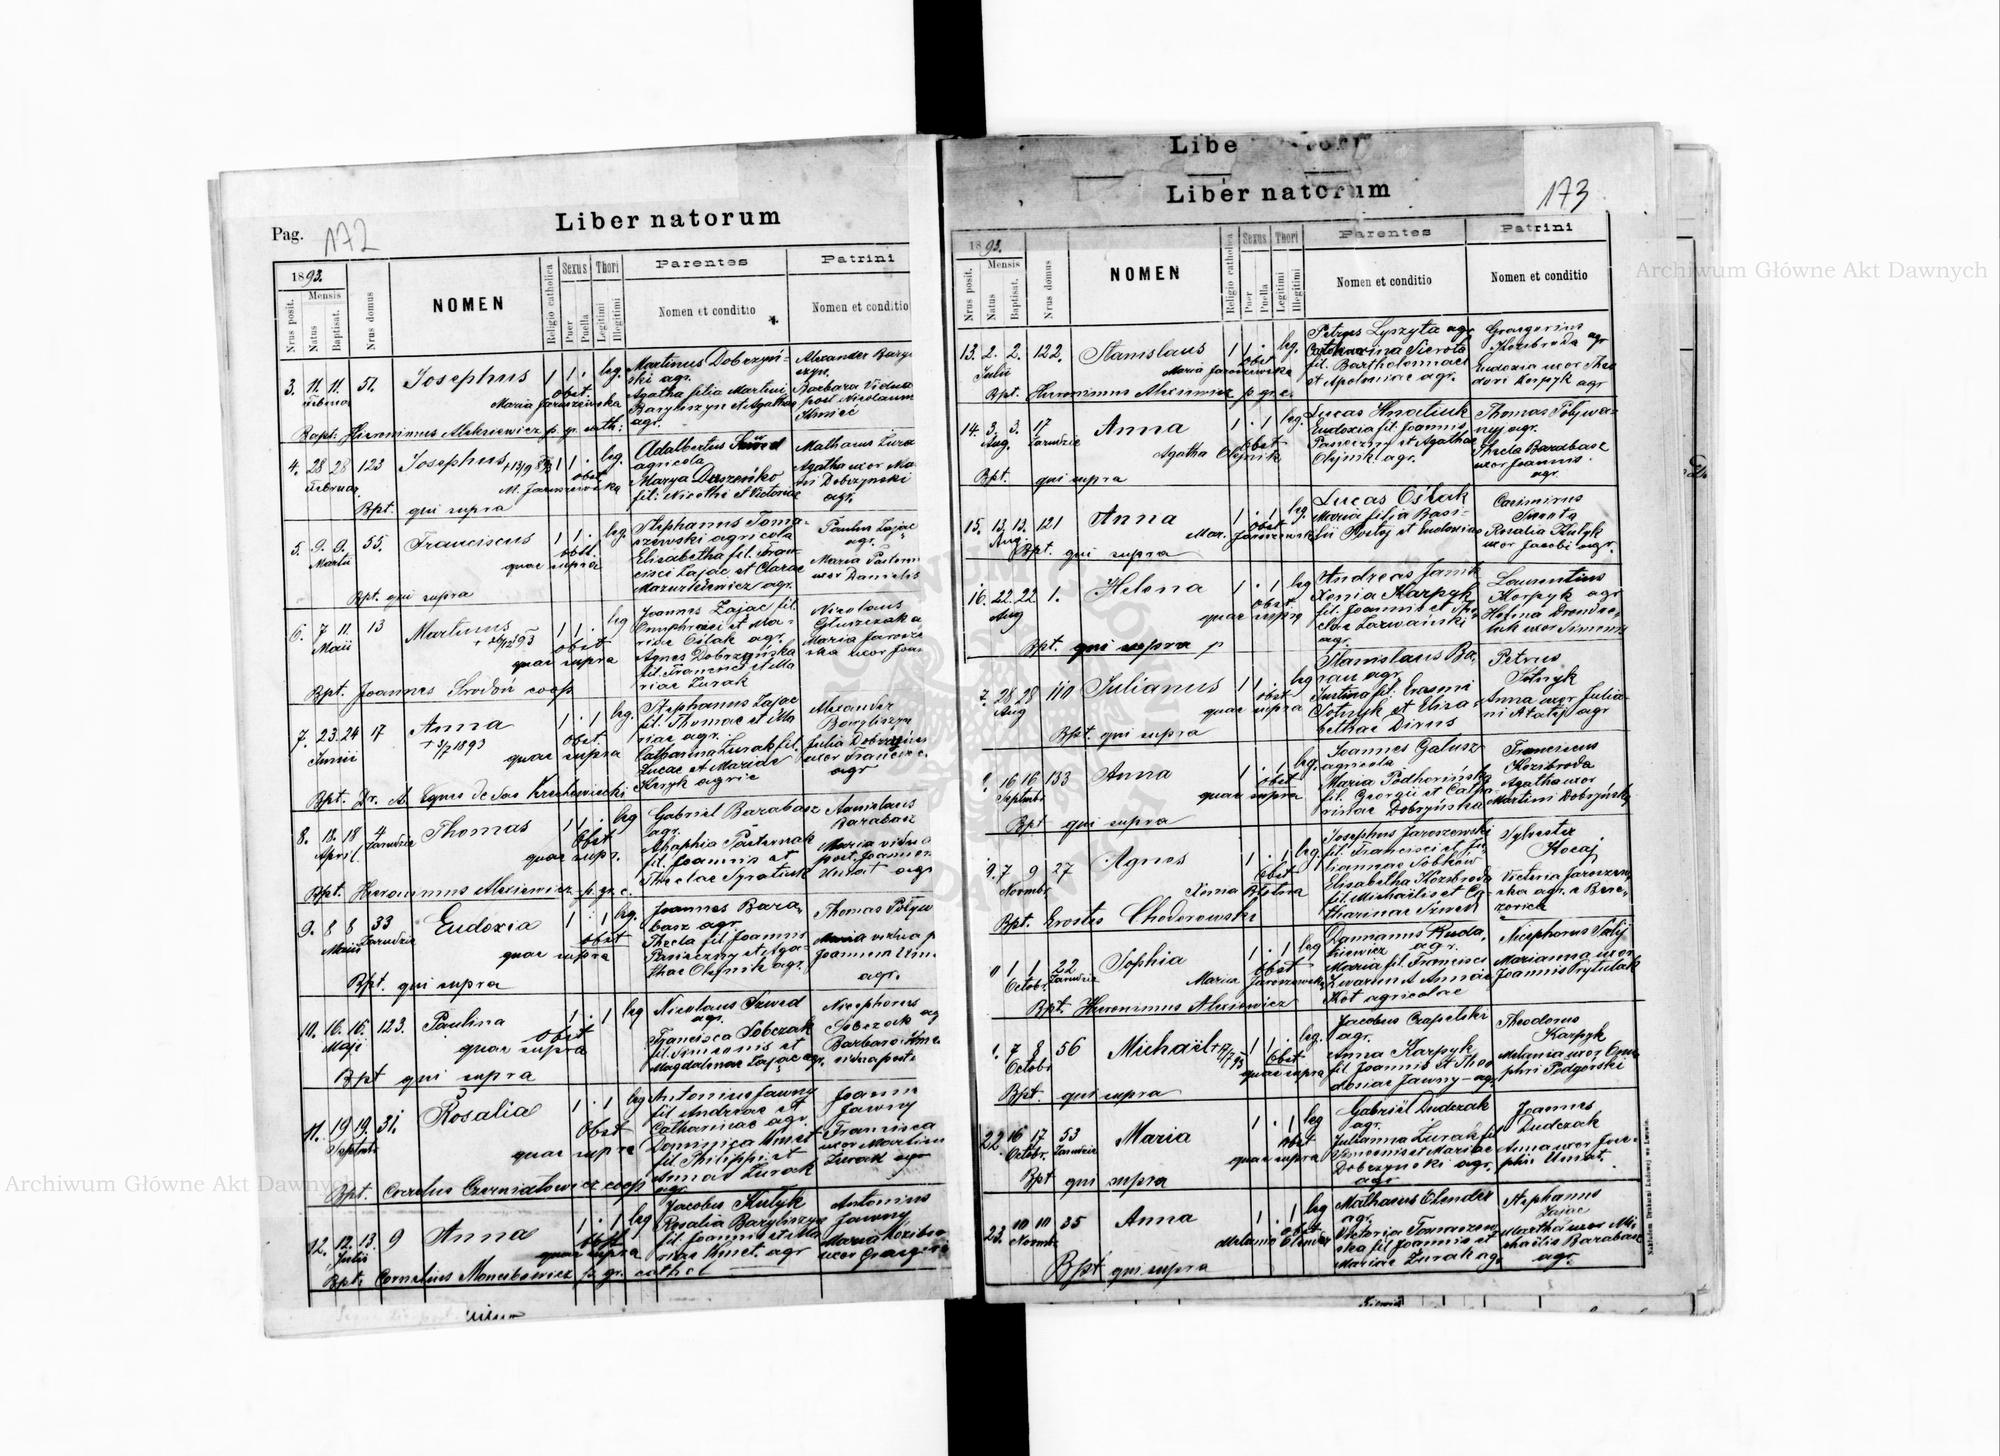 Pag. 172
Liber natorum
1893.
Nrus posit.
Mensis
Natus
Baptisat.
Nrus domus
NOMEN
Religio catholica
Sexus
Puer
Puella
Thori
Legitimi
Illegitimi
Parentes
Nomen et conditio
Patrini
Nomen et conditio
3. 11. 11. 51. Josephus 1 1 . leg. Martinus Dobrzyń- Alexander
Februar Obst. ski agr.
Maria Jaroszewska Agatha filia Martini Barbara Vidua
Barylszyn et Agathae post Nicolaum
agr. Kmieć
Bapt: Hieronimus Alexiewicz p. gr. cath:
4. 28 28 123 Josephus +13/9 1 1 . leg. Adalbertus Szwed Mathaus Żura
Februar obst. agricola Agatha uxor
M. Jaroszewska Marya fil: Nicethi et Victoriae Dobrzynski
agr.
Bpt. qui supra
5. 9. 9. 55. Franciscus 1 1 . leg. Stephanus Toma- Paulus Zając
Martii obst. szewski agricola agr.
quae supra Elisabetha fil. Fran- Maria Pastern
cisci Zając et Clarae uxor Danielis
Mazurkiewicz agr.
Bpt. qui supra
6. 7 11. 13 Martinus 1 1 . leg Joannes Zając fil. Nicolaus
Maii obst Onuphraei et Ma- Głuszczak a
quae supra riae Oślak agr. Maria Jarosze
Agnes Dobrzyńska ska uxor Joan
fil. Francisci et Ma
riae Żurak
Bpt. Joannes Srodoń coop
7. 23. 24 17 Anna 1 . 1 leg. Stephanus Zając Alexander
Junii + 3/7 1893 Obst. fil. Thomae et Ma Barylszyn
quae supra riae agr. Julia Dobrzyńs
Catharina Żurak fil. uxor Francisc
Lucae et Mariae agr
agric
Bpt. Dr. A.
8. 18. 18 4 Thomas 1 1 . leg Gabriel Barabasz Stanislaus
April. Zarudzie Obst agr. Barabasz
quae supr. Ahaphia Pasternak Maria vidua
fil. Joannis et post. Joannem
Theclae agr
Bpt. Hieronimus Alexiewicz p. gr. c.
9. 8 8 33 Eudoxia 1 . 1 leg. Joannes Bara- Thomas Poływ
Maii Zarudzie obst basz agr. Maria vidua p
quae supra Thecla fil. Joannis Joannem
Panieczny et Aga- agr.
thae Olejnik agr.
Bpt. qui supra
10. 16. 16. 123. Paulina 1 . 1 leg Nicolaus Szwed Nicephorus
Maji Obst agr. Sobczak ag
quae supra Francisca Sobczak Barbara
fil. Simeonis et vidua post
Magdalenae Zając agr.
Bpt qui supra
11. 19 19. 31. Rosalia 1 . 1 leg Antonius Jawny Joann
Septmb Obst fil Andreae et Jawny
quae supra Catharinae agr. Francisca
Dominica Kmet uxor Martini
fil Philippi et Żurak agr
Annae Żurak
agr.
Bpt. Cornelius coop
12. 12. 13. 9 Anna 1 . 1 leg Jacobus Kułyk Antonius
Julii obst Rosalia Barylszyn Jawny
quae supra fil Joannis et Ma Maria Kozibro
riae Kmet. agr uxor Gregorii
Bpt: Cornelius p. gr. cathol
Liber natorum
173
1893.
Nrus posit.
Mensis
Natus
Baptisat.
Nrus domus
NOMEN
Religio catholica
Sexus
Puer
Puella
Thori
Legitimi
Illegitimi
Parentes
Nomen et conditio
Patrini
Nomen et conditio
13. 2. 2. 122. Stanislaus 1 1 . leg. Petrus Łyszyta agr. Gregorius
Julii Obst Catharina Sierota Kozibroda agr
Maria Jaroszewska fil. Bartholomaei Eudoxia uxor Theo
et Apoloniae agr. dori Karpyk agr
Bpt. Hieronimus Alexiewicz p. gr. c.
14. 3. 3. 17 Anna 1 . 1 leg. Lucas Hnatiuk Thomas Poływa-
Aug. Zarudzie Obst Eudoxia fil. Joannis nyj agr.
Agatha Olejnik Panieczny et Agathae Thecla Barabasz
Olejnik agr. uxor Joannis
agr.
Bpt. qui supra
15. 13. 13. 121 Anna 1 . 1 leg. Lucas Oślak Casimirus
Aug. Obst Maria filia Basi- Smenta
Mar. Jaroszewska lii Kostoj et Eudoxiae Rosalia Kułyk
uxor Jacobi agr.
Bpt. qui supra
16. 22. 22 1. Helena 1 . 1 leg Andreas Janik Laurentius
Aug Obst. Xenia Karpyk Karpyk agr
quae supra fil. Joannis et The- Helena
clae Zarwański uxor Simeonis
agr.
Bpt. qui supra
7. 28 28 110 Julianus 1 1 . leg Stanislaus Ba- Petrus
Aug obst ran agr. Sotnyk
quae supra Justina fil: Erasmi Anna uxor Julia-
Sotnyk et Eliza- ni agr
bethae
Bpt. qui supra
16 16 133 Anna 1 . 1 leg. Joannes Galusz Franciscus
Septmbr obst agricola Kozibroda
quae supra Maria Podhorińska Agatha uxor
fil. Georgii et Catha- Martini Dobrzyńsky
rinae Dobrzyńska
Bpt qui supra
9. 7 9 27 Agnes 1 . 1 leg. Josephus Jaroszewski Sylvester
Novmbr. Obst fil. Francisci et Ju- Kocaj
Xenia liannae Sobków Victoria Jaroszew
Elisabetha Kozibroda ska agr. e Bere-
fil Michaëlis et Ca- zowica
tharinae Szwed
Bpt. Erastes Chodorowski
1 1 22 Sophia 1 . 1 leg Damianus Ruda- Nicephorus
Octobr. Zarudzie Obst kiewicz agr. Marianna uxor
Maria Jaroszewska Maria fil. Francisci Joannis Prytulak
Kwarten et Annae
Kot agricolae
Bpt. Hieronimus Alexiewicz
7 8 56 Michaël 1 1 . leg. Jacobus Czapelski Theodorus
Octobr Obst agr. Karpyk
quae supra Anna Karpyk Melania uxor Onu
fil Joannis et Theo phri Podgórski
dosiae Jawny - agr.
Bpt. qui supra
22. 16 17 53 Maria 1 . 1 leg Gabriël Dudczak Joannes
Octobr. Zarudzie obst agr. Dudczak
quae supra Julianna Żurak fil Anna uxor Jose-
Simeonis et Mariae phi
Dobrzynski agr.
agr
Bpt qui supra
23. 10 10 35 Anna 1 . 1 leg Mathaeus Elender Stephanus
Novmbr obst agr. Zając
Melania Elender Victoria Tomaszew- Martha uxor Mi
ska fil Joannis et chaëlis Barabasz
Mariae Żurak agr. agr.
Bpt qui supra
Nakładem Drukarni Ludowej we Lwowie.
Archiwum Główne Akt Dawnych
Archiwum Główne Akt Dawnych